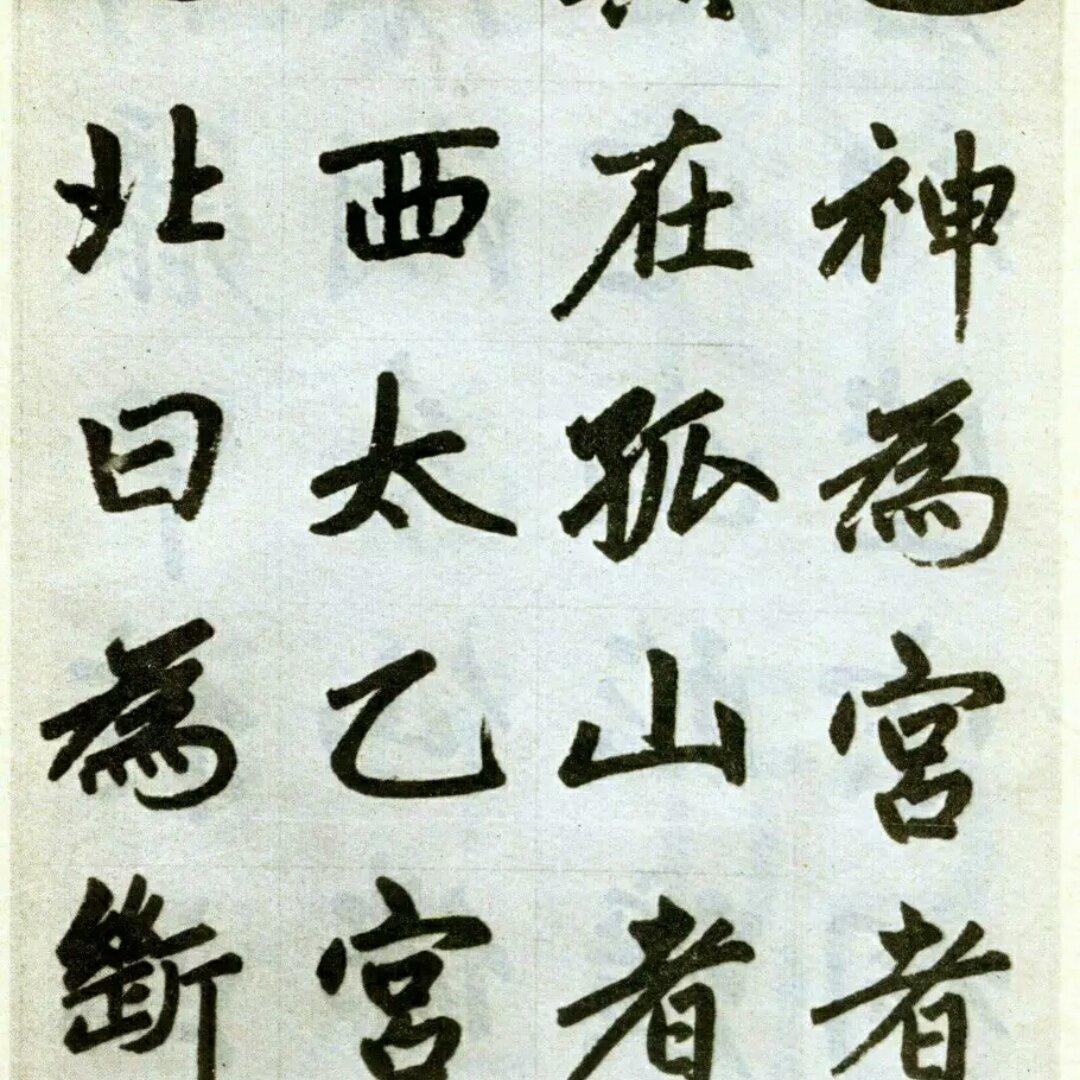 神為宮者
在孤山者
西太乙宮
北曰為斷